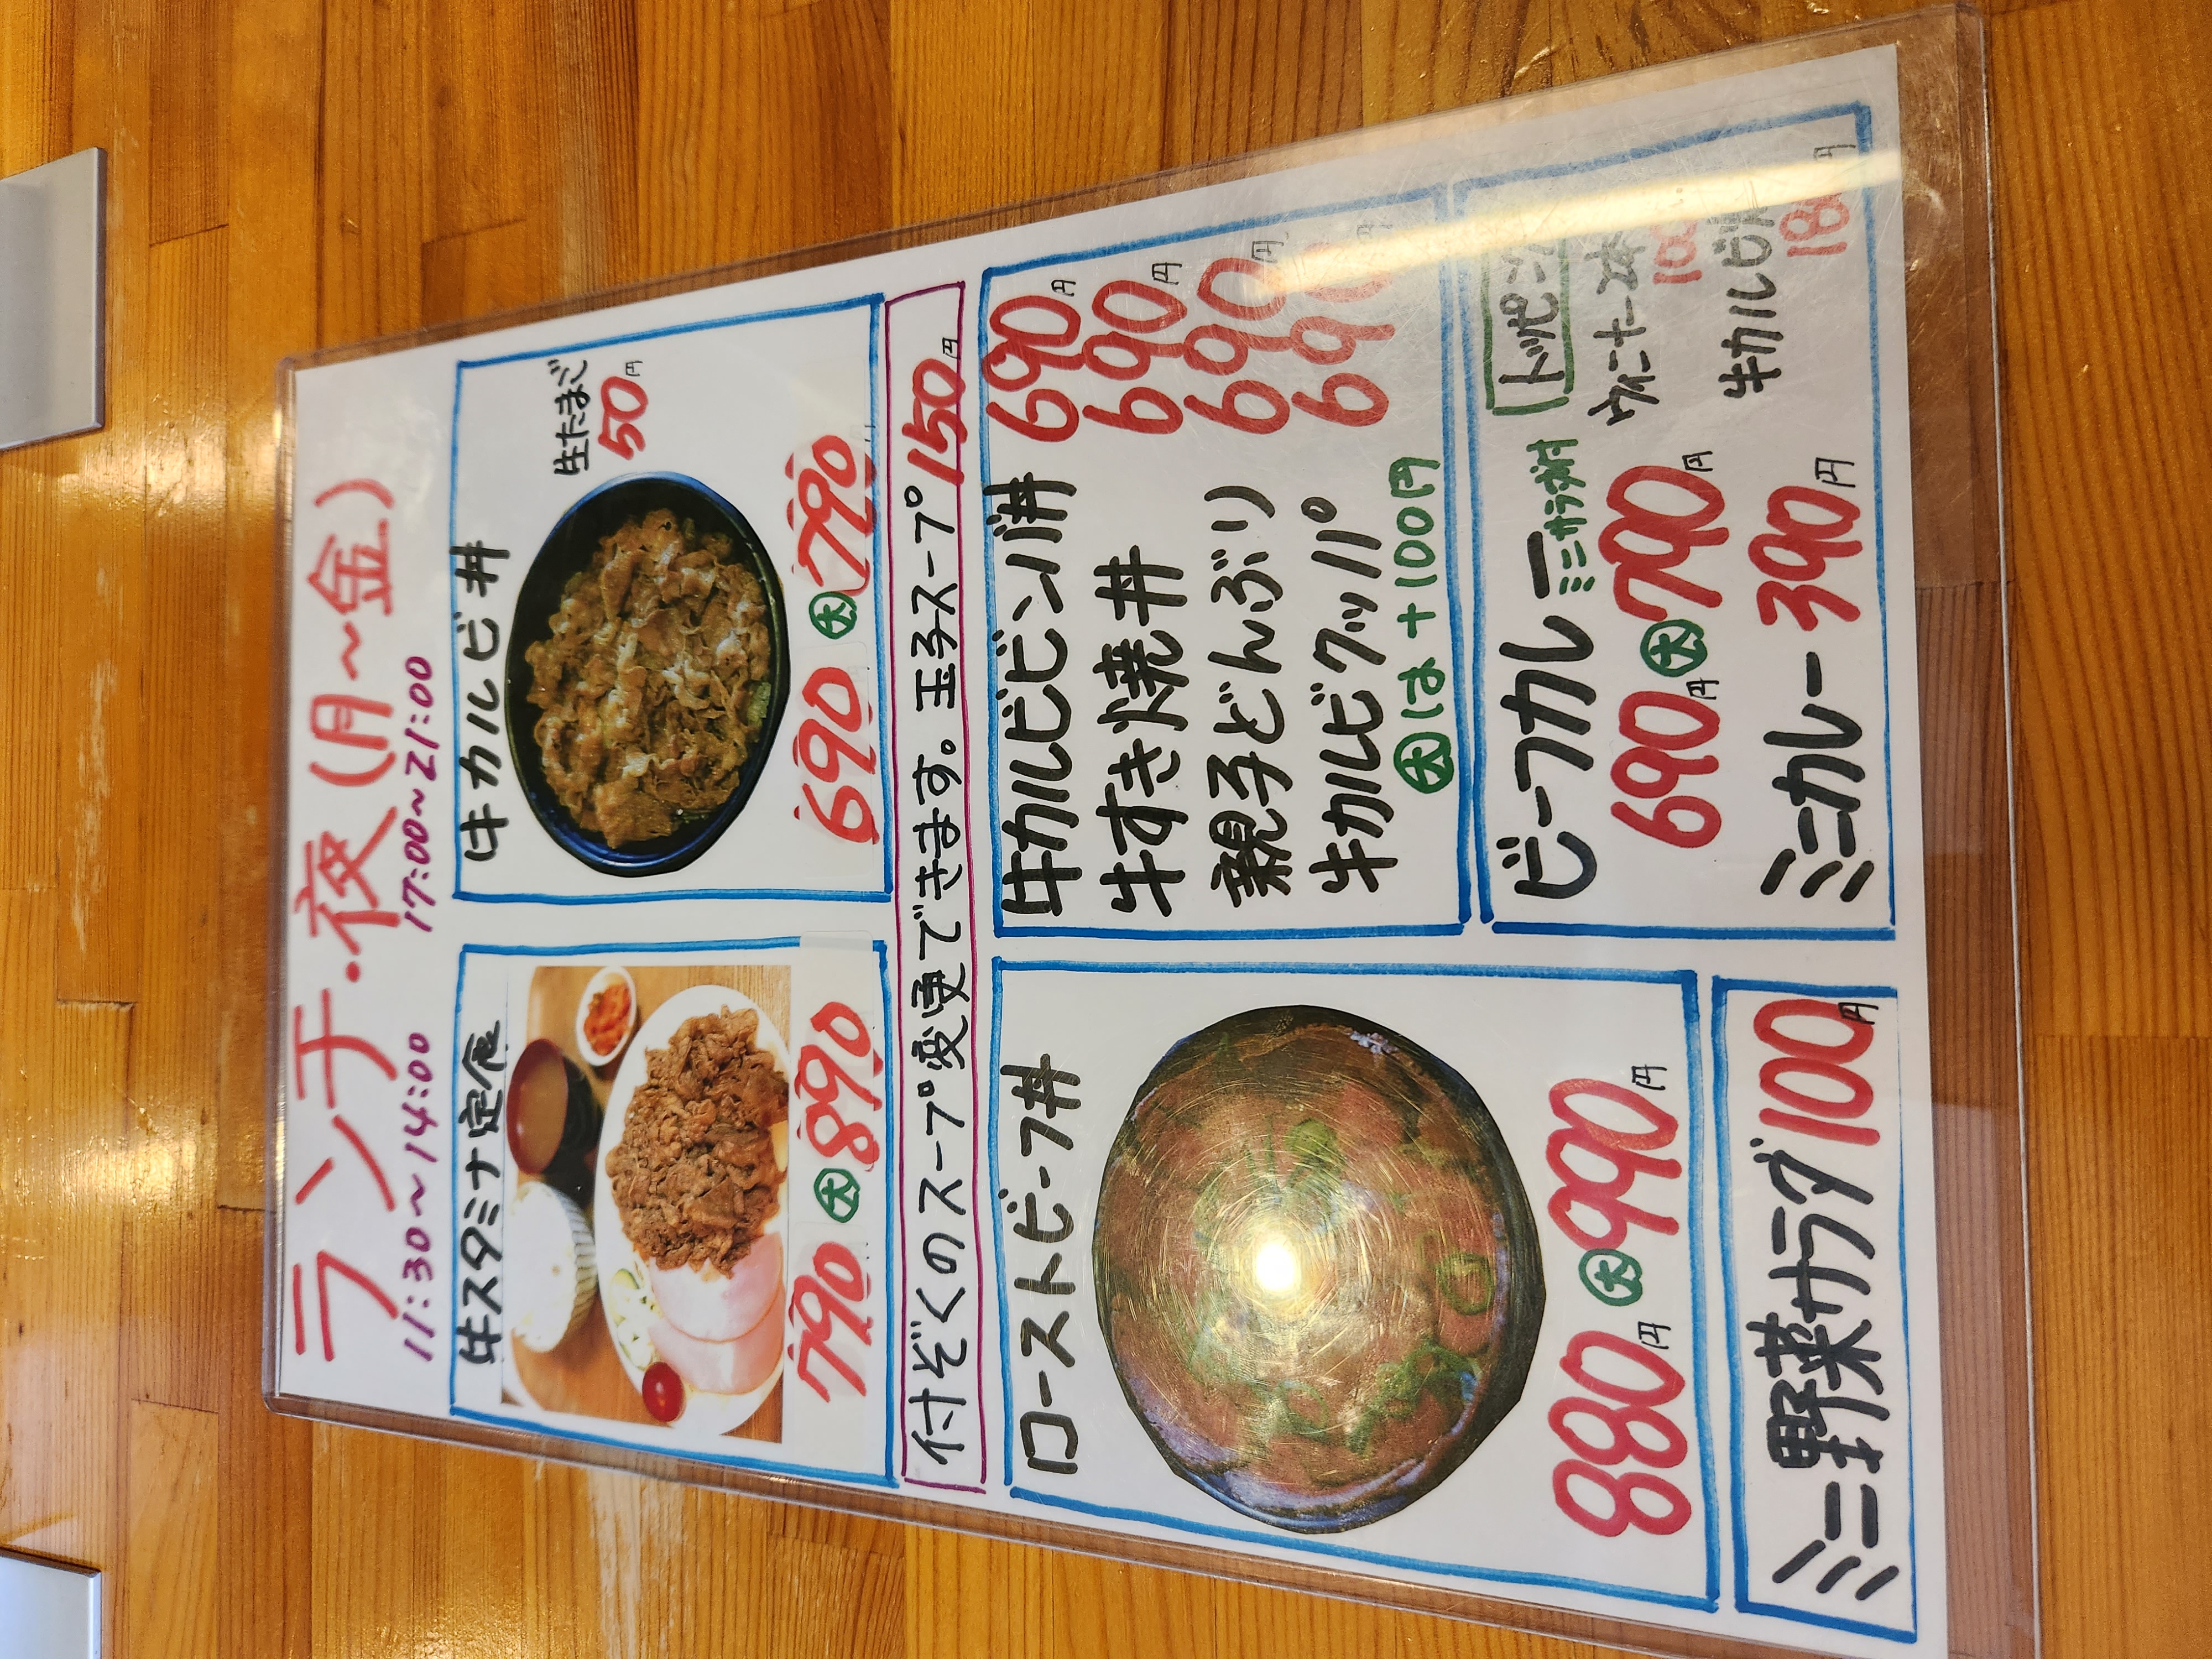 ランチ・夜(月〜金)
11:30〜14:00 17:00〜21:00
牛スタミナ定食
790 大 890
牛カルビ丼
生たまご
50円
690 大 790
付ぞくのスープ変更できます。玉子スープ150円
ローストビーフ丼
880円 大 990円
ミニ野菜サラダ100円
牛カルビビビンバ丼 690円
牛すき焼丼 690円
親子どんぶり 690円
牛カルビクッパ 690円
大は+100円
ビーフカレー ミニサラダ付
690円 大 790円
ミニカレー 390円
トッピング
ウィンナー2本
牛カルビ